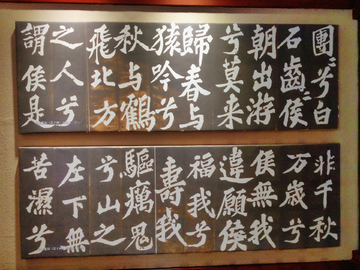 團〻兮白
石齒〻侯
朝出游
兮莫来
歸春与
猿吟兮
秋与鶴
飛北方
之人兮
謂侯是
非千秋
万歳兮
侯無我
違願侯
福我兮
壽我
驅癘鬼
兮山之
左下無
苦濕兮